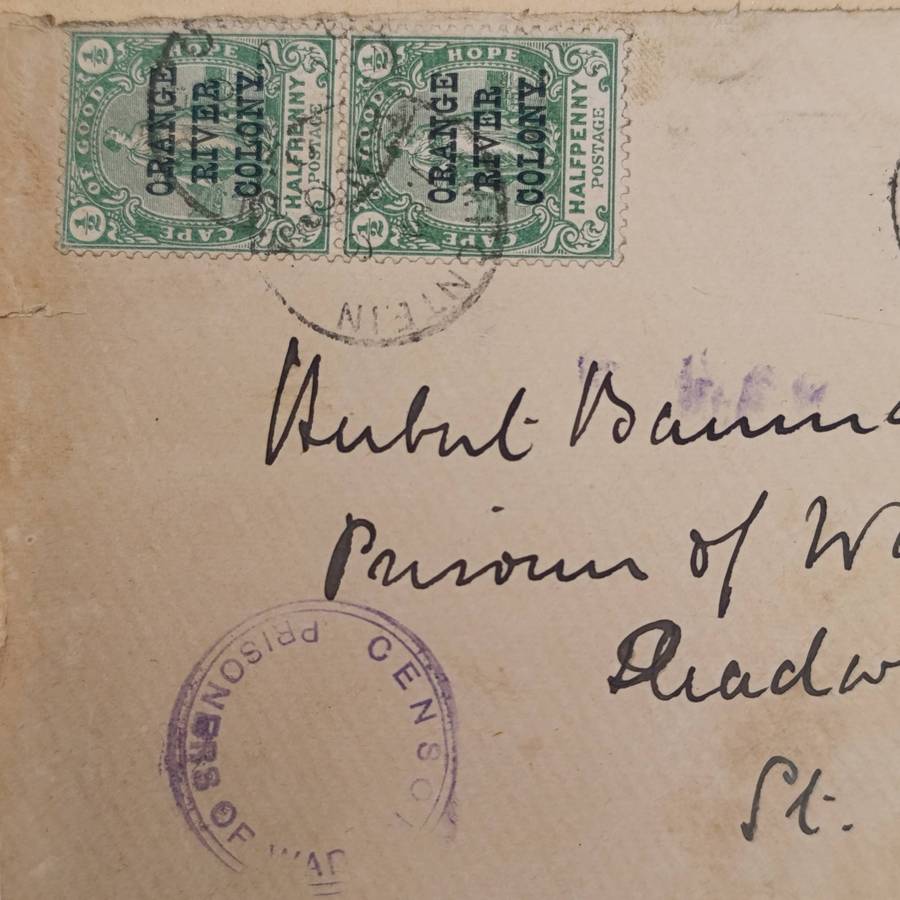 ½ HOPE ½ HOPE
OF GOOD ORANGE RIVER COLONY. HALFPENNY POSTAGE OF GOOD ORANGE RIVER COLONY. HALFPENNY POSTAGE
½ CAPE ½ CAPE
NTEIN
Herbert
Prisoner of
St.
CENSO
PRISONERS OF WAR